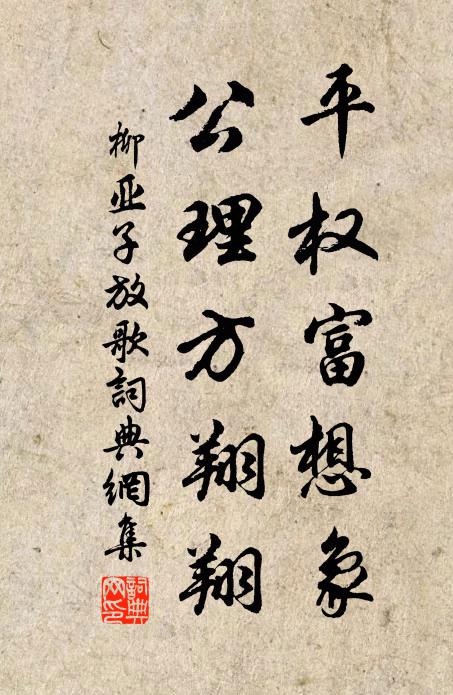 平权富想象
公理方翔翔
柳亚子放歌詞典網集
詞典網印